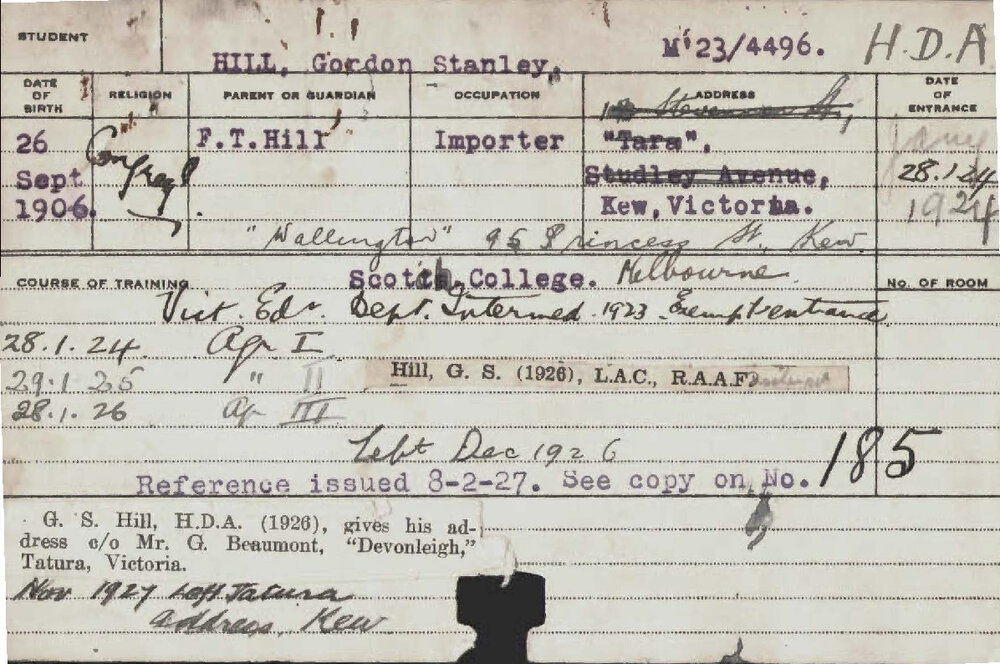 STUDENT
HILL, Gordon Stanley,
M'23/4496.
H.D.A
DATE OF BIRTH
RELIGION
PARENT OR GUARDIAN
OCCUPATION
ADDRESS
DATE OF ENTRANCE
26 Sept 1906.
F.T.Hill
Importer
"Tara",
Studley Avenue,
Kew, Victoria.
28.1.24
1924
"Wallington" 95 Princess St. Kew
COURSE OF TRAINING
Scotch College. Melbourne
No. OF ROOM
Vict. Edn Dept. Intermed. 1923. Exempt entrance
28.1.24. Agr I
29.1.25 " II
Hill, G. S. (1926), L.A.C., R.A.A.F.
28.1.26 Ag III
Left Dec 1926
185
Reference issued 8-2-27. See copy on No.
G. S. Hill, H.D.A. (1926), gives his ad-
dress c/o Mr. G. Beaumont, "Devonleigh,"
Tatura, Victoria.
Nov 1927 Left Tatura
address, Kew